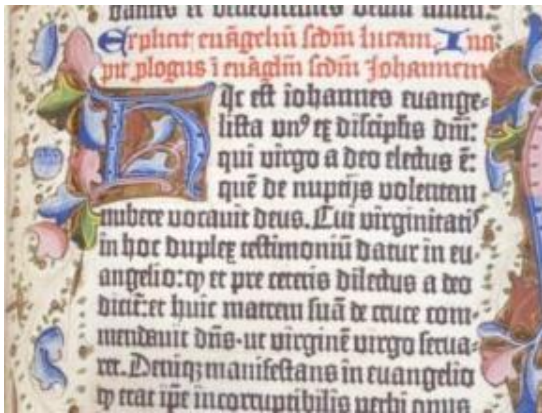 dantes et benedicentes deum amen.
Explicit euãgeliũ scd̃m lucam. Inci-
pit ꝓlogus ĩ euãgl̃m scd̃m Johannem
Hic est iohannes euange-
lista unꝰ ex discipl̃is dñi:
qui virgo a deo electus ẽ:
quẽ de nuptijs volentem
nubere vocavit deus. Cui v̄ginitatꝭ
in hoc duplex testimoniũ datur in eu-
angelio: ꝙ et pre ceteris dilectus a deo
dicit̃: et huic matrem suã de cruce com-
mendavit dñs. ut virginẽ virgo serua-
ret. Deniqꝫ manifestans in euangelio
ꝙ erat ip̃e incorruptibilis verbi opus